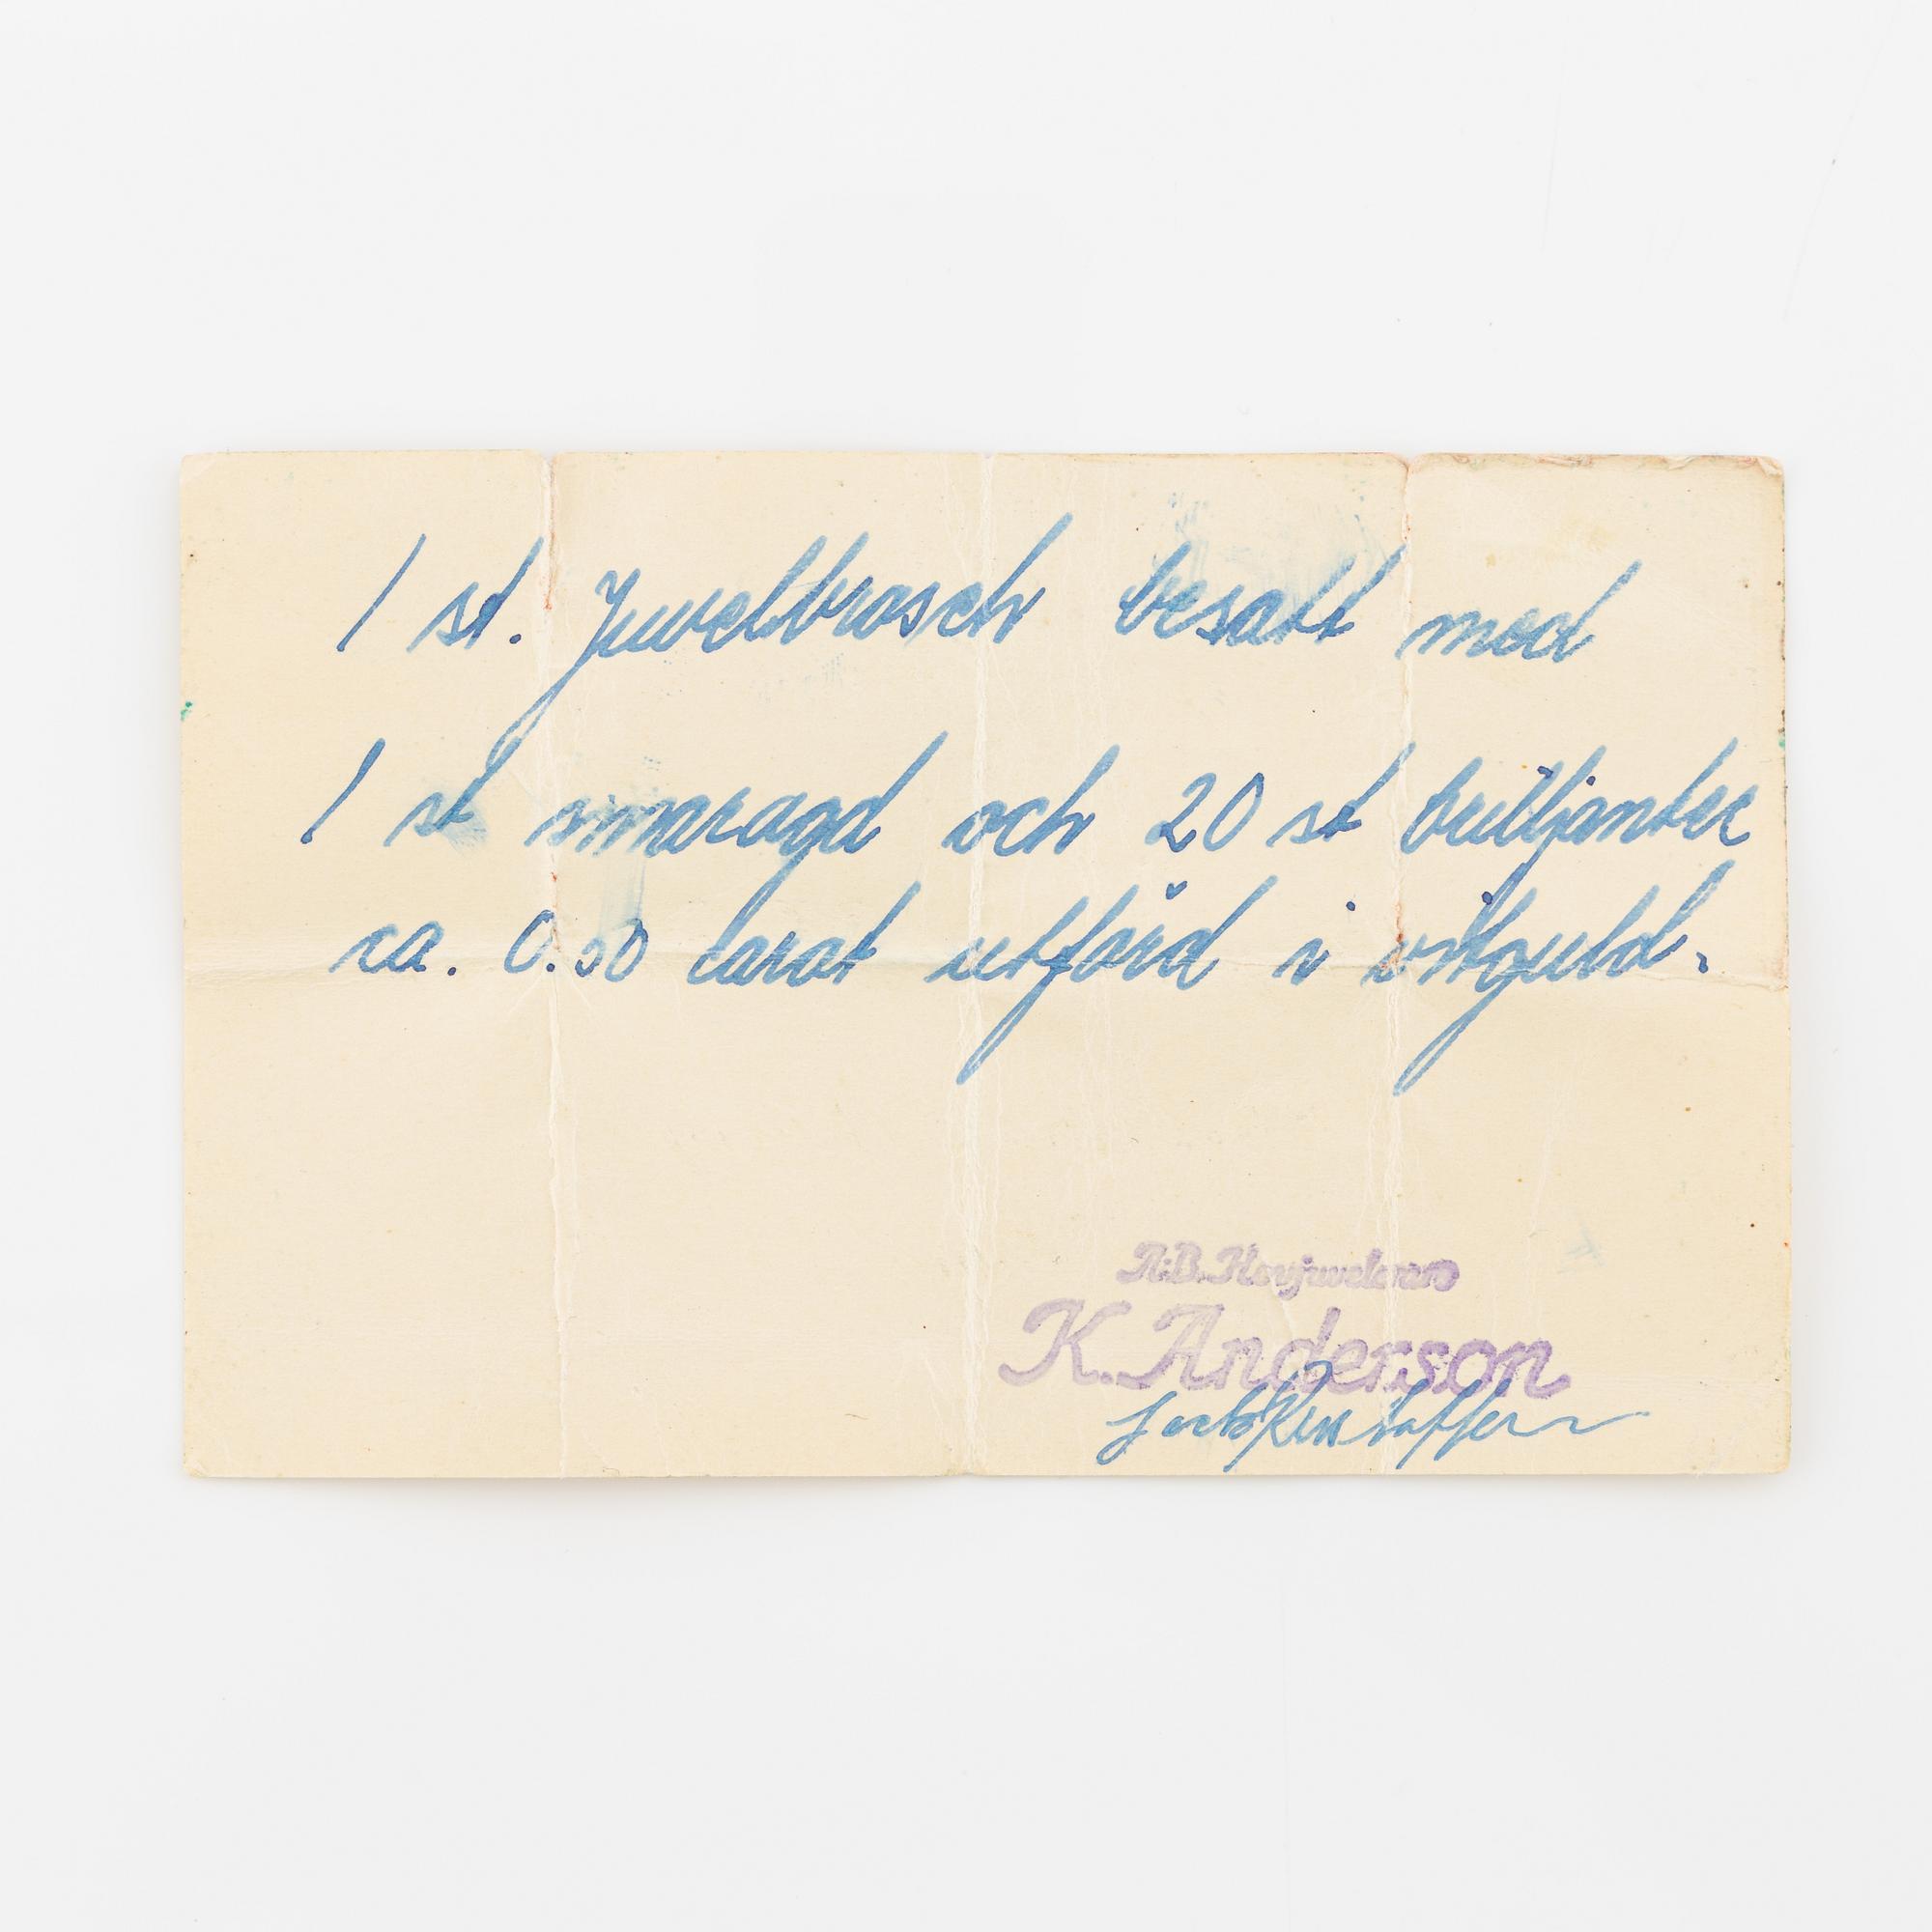 1 st. Juvelbrosch besatt med
1 st smaragd och 20 st briljanter
ca. 0.50 carat utförd i vitguld.
A.B. Hovjuveleraren
K. Anderson